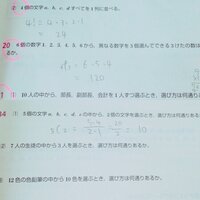 ② 4個の文字a, b, c, d すべてを1列に並べる。
4! = 4・3・2・1
= 24
20 6個の数字1, 2, 3, 4, 5, 6から, 異なる数字を3個選んでできる3けたの数は
るか。
6P3 = 6・5・4
= 120
① 10人の中から, 部長, 副部長, 会計を1人ずつ選ぶとき, 選び方は何通りあ
① 5個の文字a, b, c, d, eの中から, 2個の文字を選ぶとき, 選び方は何通りあ
5C2 = 5・4/2・1 = 20/2 = 10
② 7人の生徒の中から3人を選ぶとき, 選び方は何通りあるか。
12色の色鉛筆の中から10色を選ぶとき, 選び方は何通りあるか。